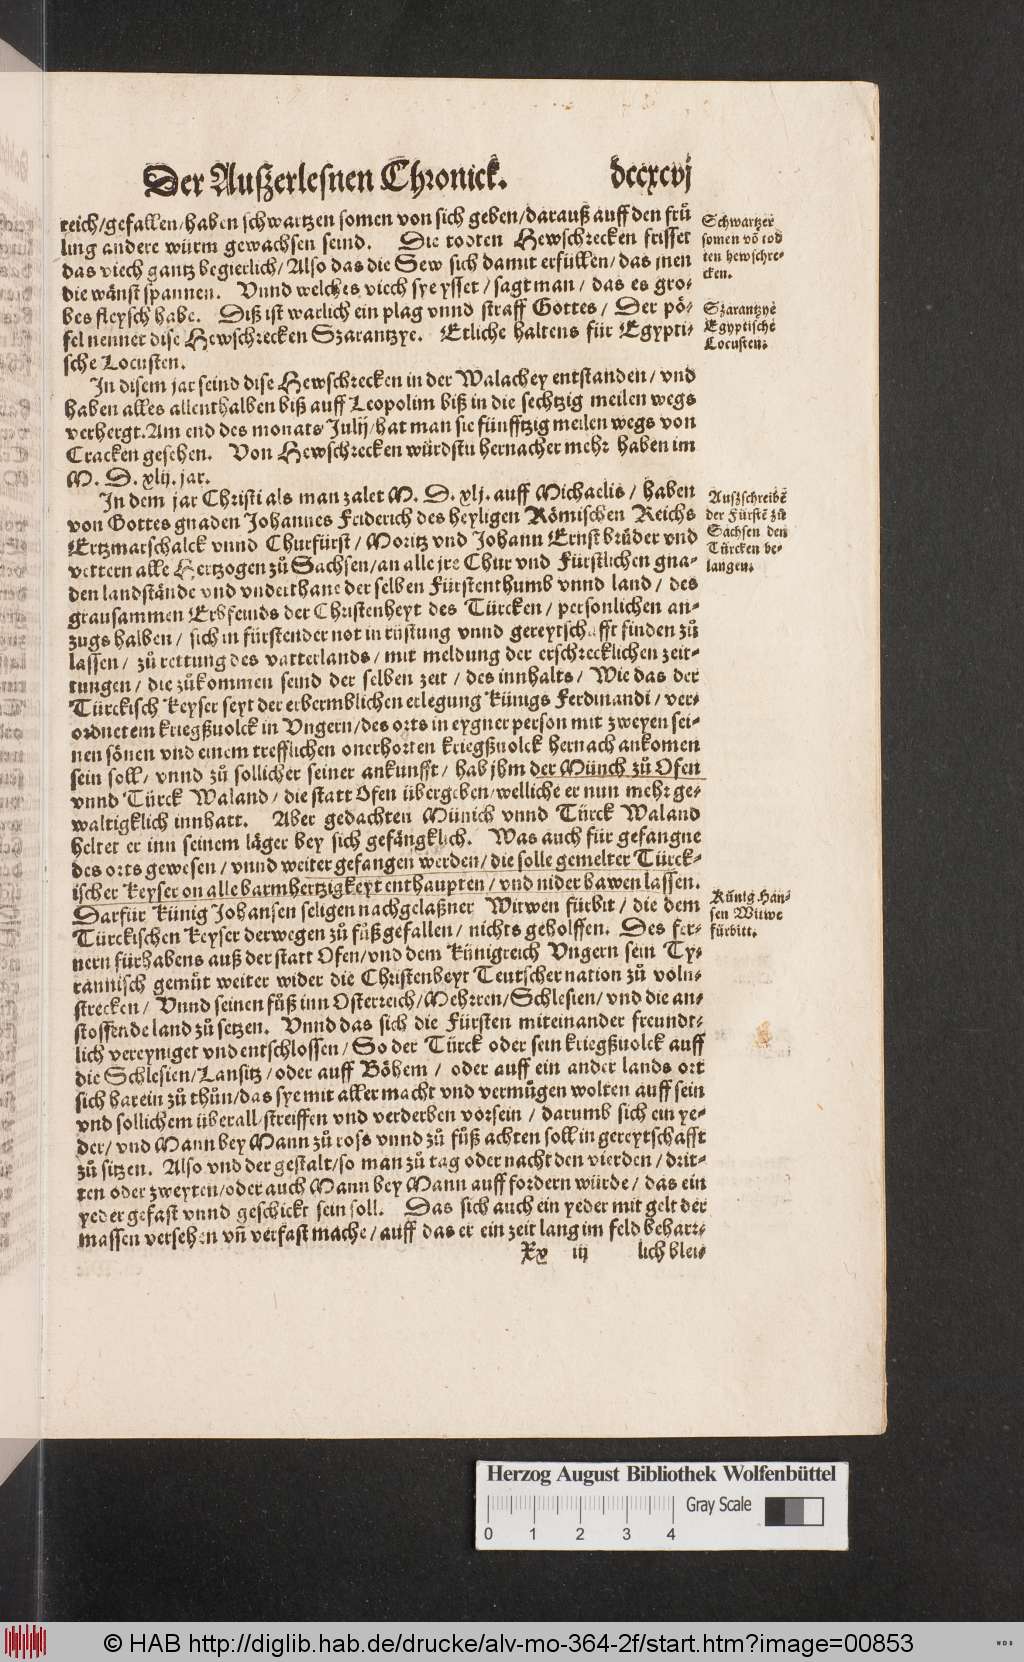 Der Außerlesnen Chronick. dccxcvj
reich/gefallen/haben schwartzen somen von sich geben/darauß auff den frů
ling andere würm gewachsen seind. Die todten Hewschrecken frisset
das viech gantz begierlich/Also das die Sew sich damit erfüllen/das jnen
die wänst spannen. Vnnd welches viech sye ysset/sagt man/das es gro-
bes fleysch habe. Diß ist warlich ein plag vnnd straff Gottes/Der pö-
fel nennet dise Hewschrecken Szarantzye. Etliche haltens für Egypti-
sche Locusten.
Schwartzer
somen võ tod
ten hewschre-
cken.
Szarantzye
Egyptische
Locusten.
In disem jar seind dise Hewschrecken in der Walachey entstanden/vnd
haben alles allenthalben biß auff Leopolim biß in die sechtzig meilen wegs
verhergt. Am end des monats Julij/hat man sie fünfftzig meilen wegs von
Cracken gesehen. Von Hewschrecken würdstu hernacher mehr haben im
M. D. xlij. jar.
In dem jar Christi als man zalet M. D. xlj. auff Michaelis/haben
von Gottes gnaden Johannes Friderich des heyligen Römischen Reichs
Ertzmarschalck vnnd Churfürst/Moritz vnd Johann Ernst brůder vnd
vettern alle Hertzogen zů Sachsen/an alle jre Chur vnd Fürstlichen gna-
den landstände vnd vnderthane der selben Fürstenthumb vnnd land/des
grausammen Erbfeinds der Christenheyt des Türcken/personlichen an-
zugs halben/sich in fürstender not in rüstung vnnd gereytschafft finden zů
lassen/zů rettung des vatterlands/mit meldung der erschrecklichen zeit-
tungen/die zůkommen seind der selben zeit/des innhalts/Wie das der
Türckisch Keyser seyt der erbermblichen erlegung Künigs Ferdinandi/ver-
ordnetem kriegßuolck in Vngern/des orts in eygner person mit zweyen sei-
nen sönen vnd einem trefflichen onerhorten kriegßuolck hernach ankomen
sein soll/vnnd zů sollicher seiner ankunfft/hab jhm der Münch zů Ofen
vnnd Türck Waland/die statt Ofen übergeben/welliche er nun mehr ge-
waltigklich innhatt. Aber gedachten Münich vnnd Türck Waland
heltet er inn seinem läger bey sich gefängklich. Was auch für gefangne
des orts gewesen/vnnd weiter gefangen werden/die solle gemelter Türck-
ischer Keyser on alle barmhertzigkeyt enthaupten/vnd nider hawen lassen.
Darfür Künig Johansen seligen nachgelaßner Witwen fürbit/die dem
Türckischen Keyser derwegen zů fůß gefallen/nichts geholffen. Des fer-
nern fürhabens auß der statt Ofen/vnd dem Künigreich Vngern sein Ty-
rannisch gemüt weiter wider die Christenheyt Teutscher nation zů voln-
strecken/Vnnd seinen fůß inn Osterreich/Mehrren/Schlesien/vnd die an-
stossende land zů setzen. Vnnd das sich die Fürsten miteinander freundt-
lich vereyniget vnd entschlossen/So der Türck oder sein kriegßuolck auff
die Schlesien/Lansitz/oder auff Böhem/oder auff ein ander lands ort
sich barein zů thůn/das sye mit aller macht vnd vermügen wolten auff sein
vnd sollichem überall/streiffen vnd verderben vorsein/darumb sich ein ye-
der/vnd Mann bey Mann zů ross vnnd zů fůß achten soll in gereytschafft
zů sitzen. Also vnd der gestalt/so man zů tag oder nacht den vierden/drit-
ten oder zweyten/oder auch Mann bey Mann auff fordern würde/das ein
yeder gefast vnnd geschickt sein soll. Das sich auch ein yeder mit gelt der
massen versehen vñ verfast mache/auff das er ein zeit lang im feld beharr-
Außschreibẽ
der Fürstẽ zů
Sachsen den
Türcken be-
langen.
Künig Han-
sen Witwe
fürbitt.
Xx iij lich blei-
Herzog August Bibliothek Wolfenbüttel
Gray Scale
0 1 2 3 4
© HAB http://diglib.hab.de/drucke/alv-mo-364-2f/start.htm?image=00853